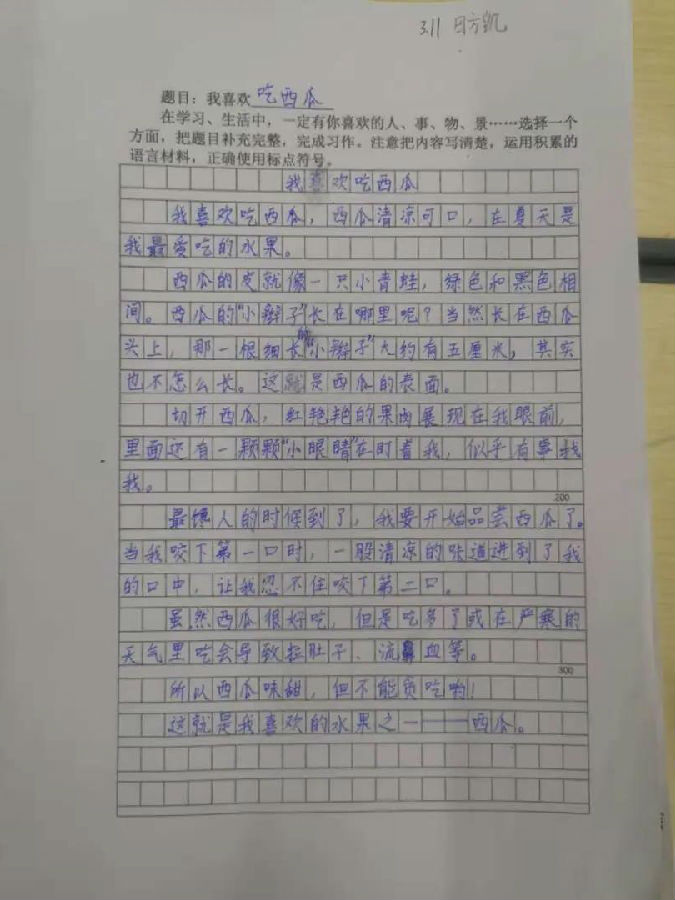 3.11 日方凯
题目：我喜欢吃西瓜
在学习、生活中，一定有你喜欢的人、事、物、景……选择一个
方面，把题目补充完整，完成习作。注意把内容写清楚，运用积累的
语言材料，正确使用标点符号。
我喜欢吃西瓜
我喜欢吃西瓜，西瓜清凉可口，在夏天是
我最爱吃的水果。
西瓜的皮就像一只小青蛙，绿色和黑色相
间。西瓜的“小辫子”长在哪里呢？当然长在西瓜
头上，那一根细长的“小辫子”大约有五厘米，其实
也不怎么长。这就是西瓜的表面。
切开西瓜，红艳艳的果肉展现在我眼前，
里面还有一颗颗“小眼睛”在盯着我，似乎有事找
我。
200
最馋人的时候到了，我要开始品尝西瓜了。
当我咬下第一口时，一股清凉的味道进到了我
的口中，让我忍不住咬下第二口。
虽然西瓜很好吃，但是吃多了或在严寒的
天气里吃会导致拉肚子、流鼻血等。
300
所以西瓜味甜，但不能贪吃哟！
这就是我喜欢的水果之一——西瓜。